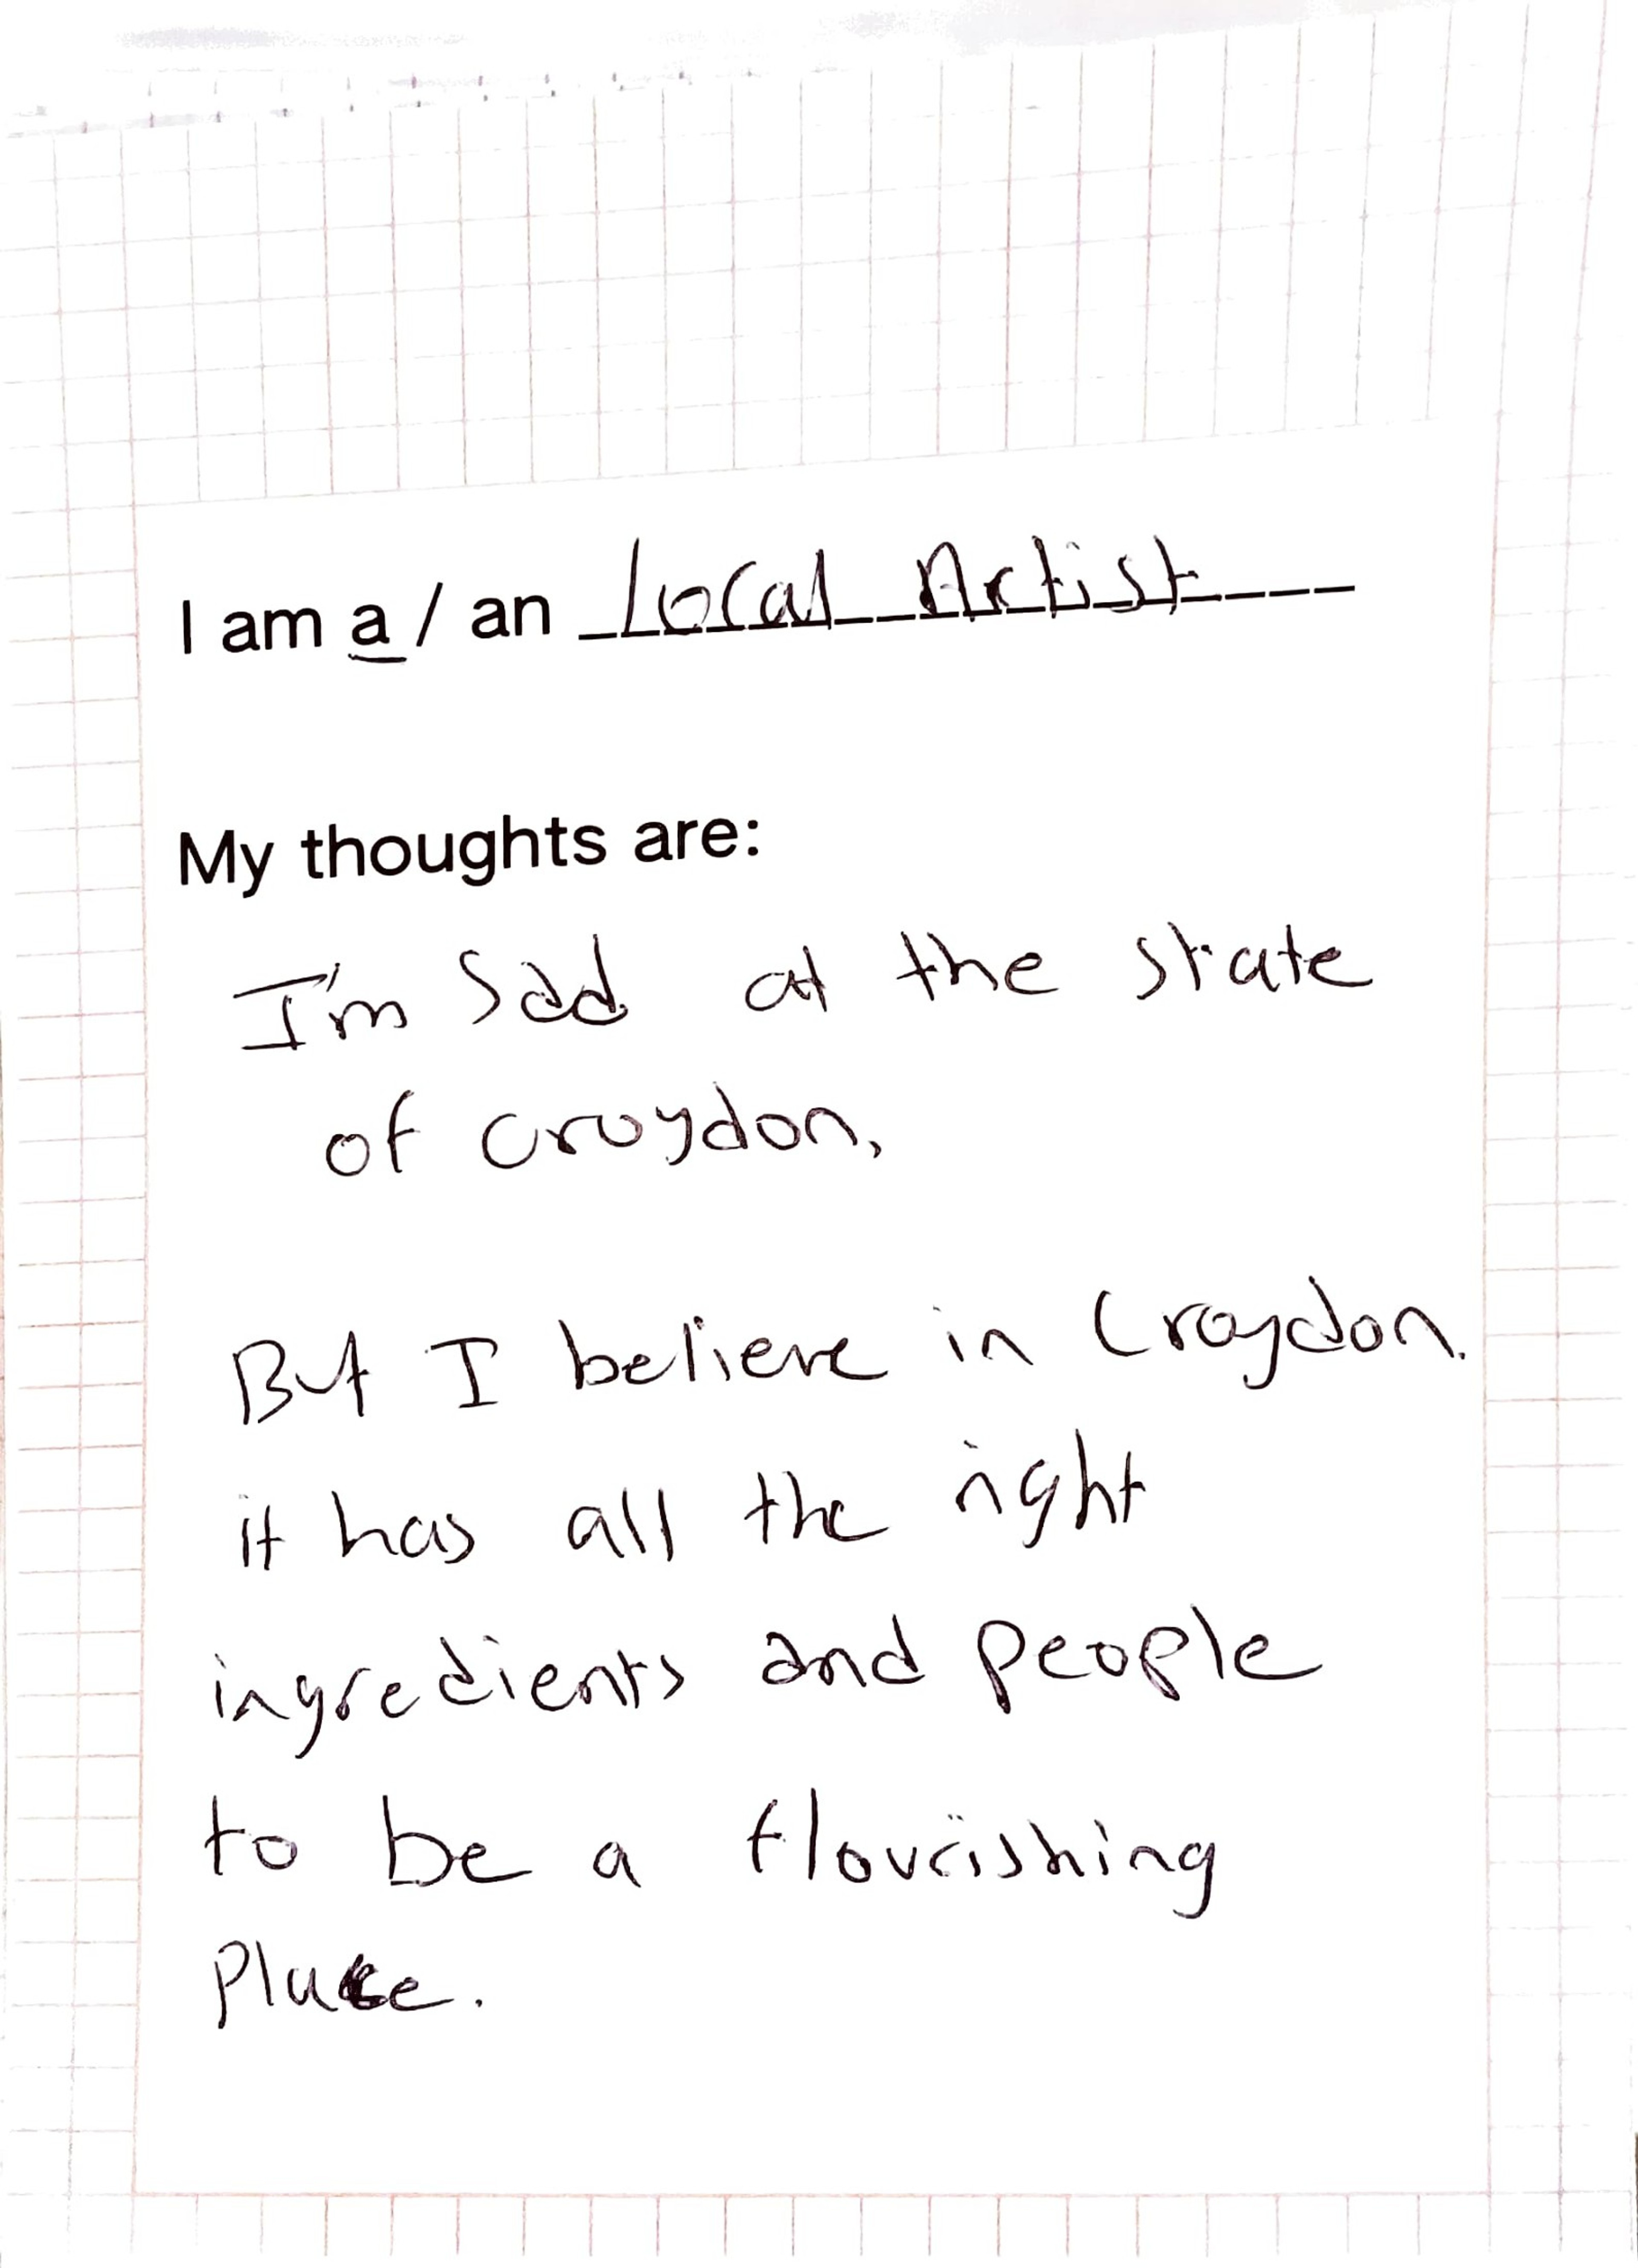 I am a / an Local Artist
My thoughts are:
I'm sad at the state
of Croydon,
But I believe in Croydon.
it has all the right
ingredients and people
to be a flourishing
Place.